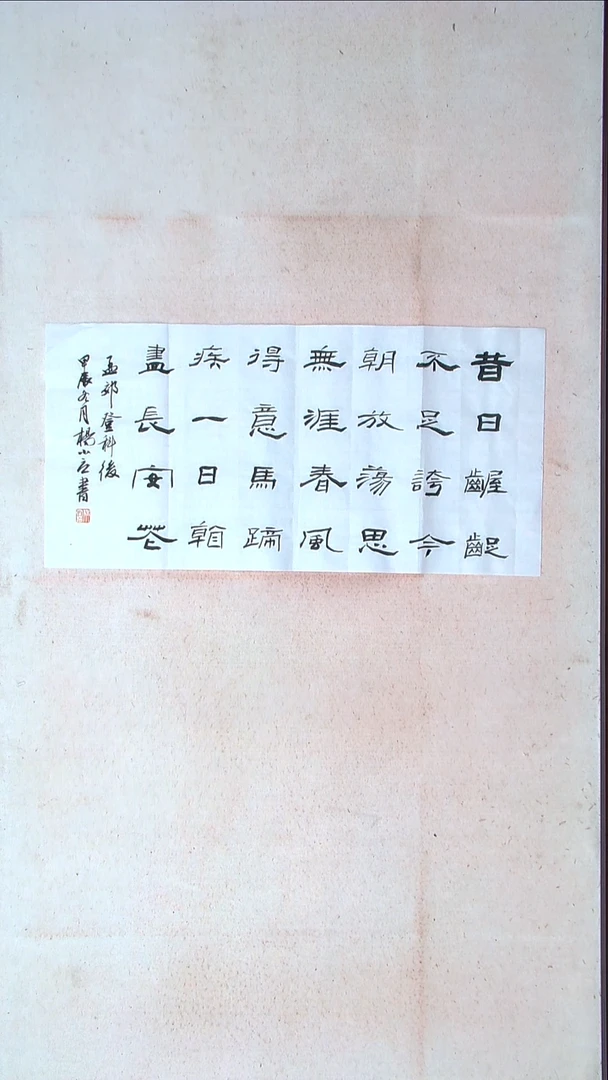 昔日齷齪
不足誇今
朝放蕩思
無涯春風
得意馬蹄
疾一日看
盡長安花
孟郊登科後
甲辰月楊小書